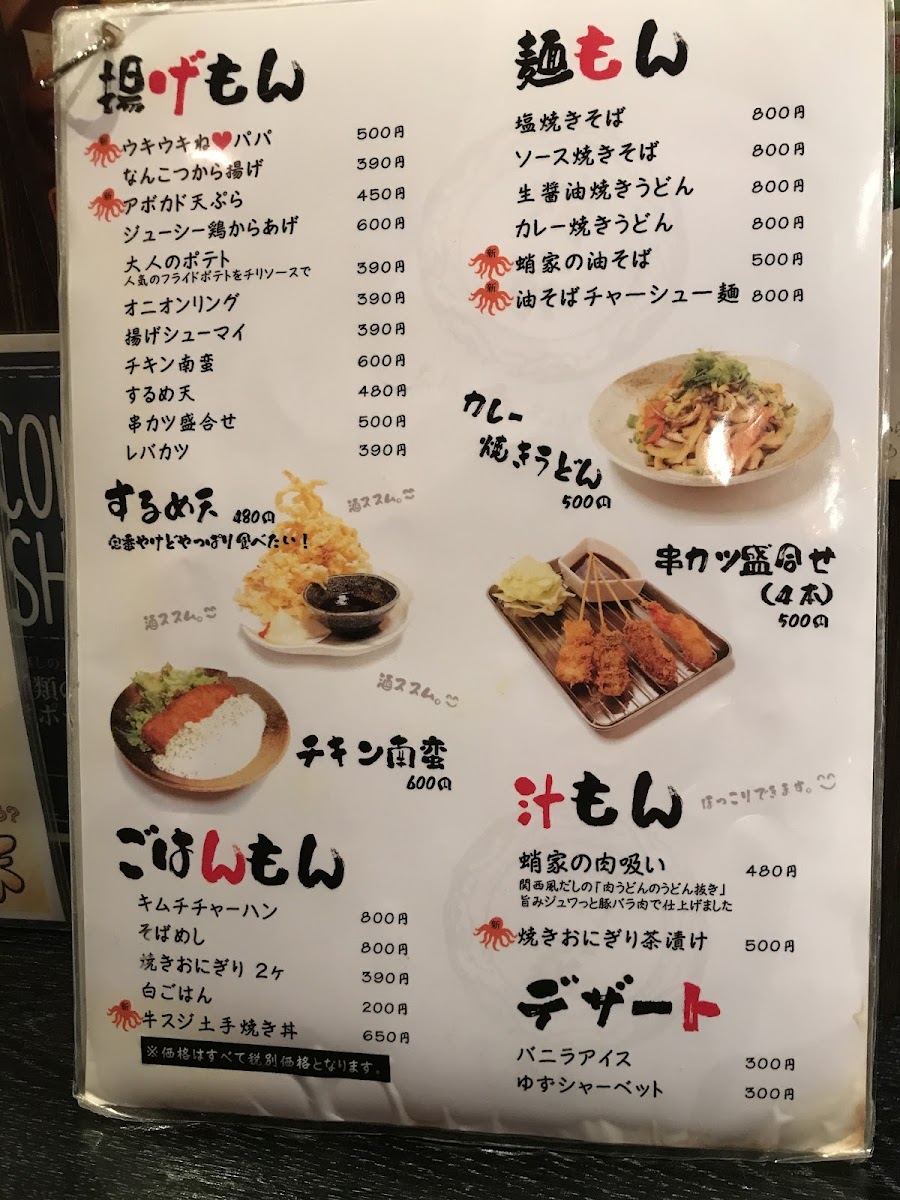 揚げもん
新 ウキウキね♥パパ 500円
なんこつから揚げ 390円
新 アボカド天ぷら 450円
ジューシー鶏からあげ 600円
大人のポテト 390円
人気のフライドポテトをチリソースで
オニオンリング 390円
揚げシューマイ 390円
チキン南蛮 600円
するめ天 480円
串カツ盛合せ 500円
レバカツ 390円
するめ天 480円
定番やけどやっぱり食べたい!
酒ススム。
酒ススム。
酒ススム。
チキン南蛮
600円
ごはんもん
キムチチャーハン 800円
そばめし 800円
焼きおにぎり 2ヶ 390円
白ごはん 200円
新 牛スジ土手焼き丼 650円
※価格はすべて税別価格となります。
麺もん
塩焼きそば 800円
ソース焼きそば 800円
生醤油焼きうどん 800円
カレー焼きうどん 800円
新 蛸家の油そば 500円
新 油そばチャーシュー麺 800円
カレー
焼きうどん
500円
串カツ盛合せ
(4本)
500円
汁もん
ほっこりできます。
蛸家の肉吸い 480円
関西風だしの「肉うどんのうどん抜き」
旨みジュワっと豚バラ肉で仕上げました
新 焼きおにぎり茶漬け 500円
デザート
バニラアイス 300円
ゆずシャーベット 300円